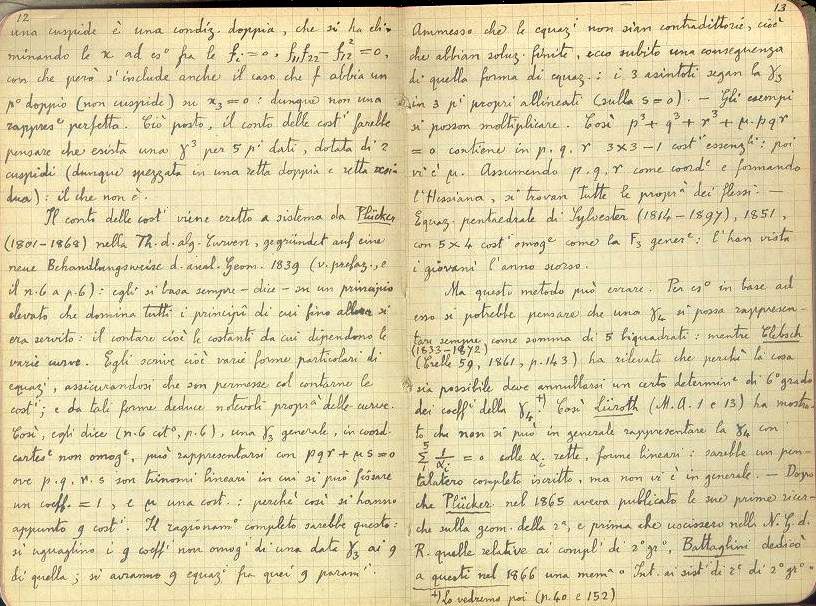 12
una cuspide è una condiz. doppia, che si ha eli-
minando le x ad es° fra le f_i = 0, f_11 f_22 - f_12^2 = 0,
con che però s'include anche il caso che f abbia un
p° doppio (non cuspide) su x_3 = 0: dunque non una
rappres^e perfetta. Ciò posto, il conto delle cost^i farebbe
pensare che esista una γ^3 per 5 p^i dati, dotata di 2
cuspidi (dunque spezzata in una retta doppia e retta
dua): il che non è.
Il conto delle cost^i viene eretto a sistema da Plücker
(1801-1868) nella Th. d. alg. Curven, gegründet auf eine
neue Behandlungsweise d. anal. Geom. 1839 (v. prefaz., e
il n. 6 a p. 6): egli si basa sempre - dice - su un principio
elevato che domina tutti i principî di cui fino allora si
era servito: il contare cioè le costanti da cui dipendono le
varie curve. Egli scrive cioè varie forme particolari di
equaz^i, assicurandosi che son permesse col contarne le
cost^i; e da tali forme deduce notevoli propr^à delle curve.
Così, egli dice (n. 6 cit°, p. 6), una γ_3 generale, in coord.
cartes^e non omog^e, può rappresentarsi con pqr + μs = 0
ove p.q.r.s son trinomi lineari in cui si può fissare
un coeff. = 1, e μ una cost.: perchè così si hanno
appunto 9 cost^i. Il ragionam° completo sarebbe questo:
si uguaglino i 9 coeff^i non omog^i di una data γ_3 ai 9
di quella; si avranno 9 equaz^i fra quei 9 param^i.
13
Ammesso che le equaz^i non sian contradittorie, cioè
che abbian soluz. finite, ecco subito una conseguenza
di quella forma di equaz.: i 3 asintoti segan la γ_3
in 3 p^i propri allineati (sulla s = 0). - Gli esempi
si posson moltiplicare. Così p^3 + q^3 + r^3 + μ.pqr
= 0 contiene in p.q.r 3×3-1 cost^i essenz^li: poi
vi è μ. Assumendo p.q.r come coord^e e formando
l'Hessiana, si trovan tutte le propr^à dei flessi. -
Equaz. pentaedrale di Sylvester (1814-1897), 1851,
con 5×4 cost^i omog^e come la F_3 gener^e: l'han vista
i giovani l'anno scorso.
Ma questo metodo può errare. Per es° in base ad
esso si potrebbe pensare che una γ_4 si possa rappresen-
tare sempre come somma di 5 biquadrati: mentre Clebsch
(1833-1872)
(Crelle 59, 1861, p. 143) ha rilevato che perchè la cosa
sia possibile deve annullarsi un certo determin^e di 6° grado
dei coeff^i della γ_4. +) Così Lüroth (M.A. 1 e 13) ha mostra-
to che non si può in generale rappresentare la γ_4 con
Σ_1^5 1/α_i = 0 colle α_i rette, forme lineari: sarebbe un pen-
talatero completo iscritto, ma non vi è in generale. - Dopo
che Plücker nel 1865 aveva publicato le sue prime ricer-
che sulla geom. della r^a, e prima che uscissero nella N. G. d.
R. quelle relative ai compl^i di 2° gr°, Battaglini dedicò
a questi nel 1866 una mem^a "Int. ai sist^i di r^e di 2° gr°"
+) Lo vedremo poi (p. 40 e 152)